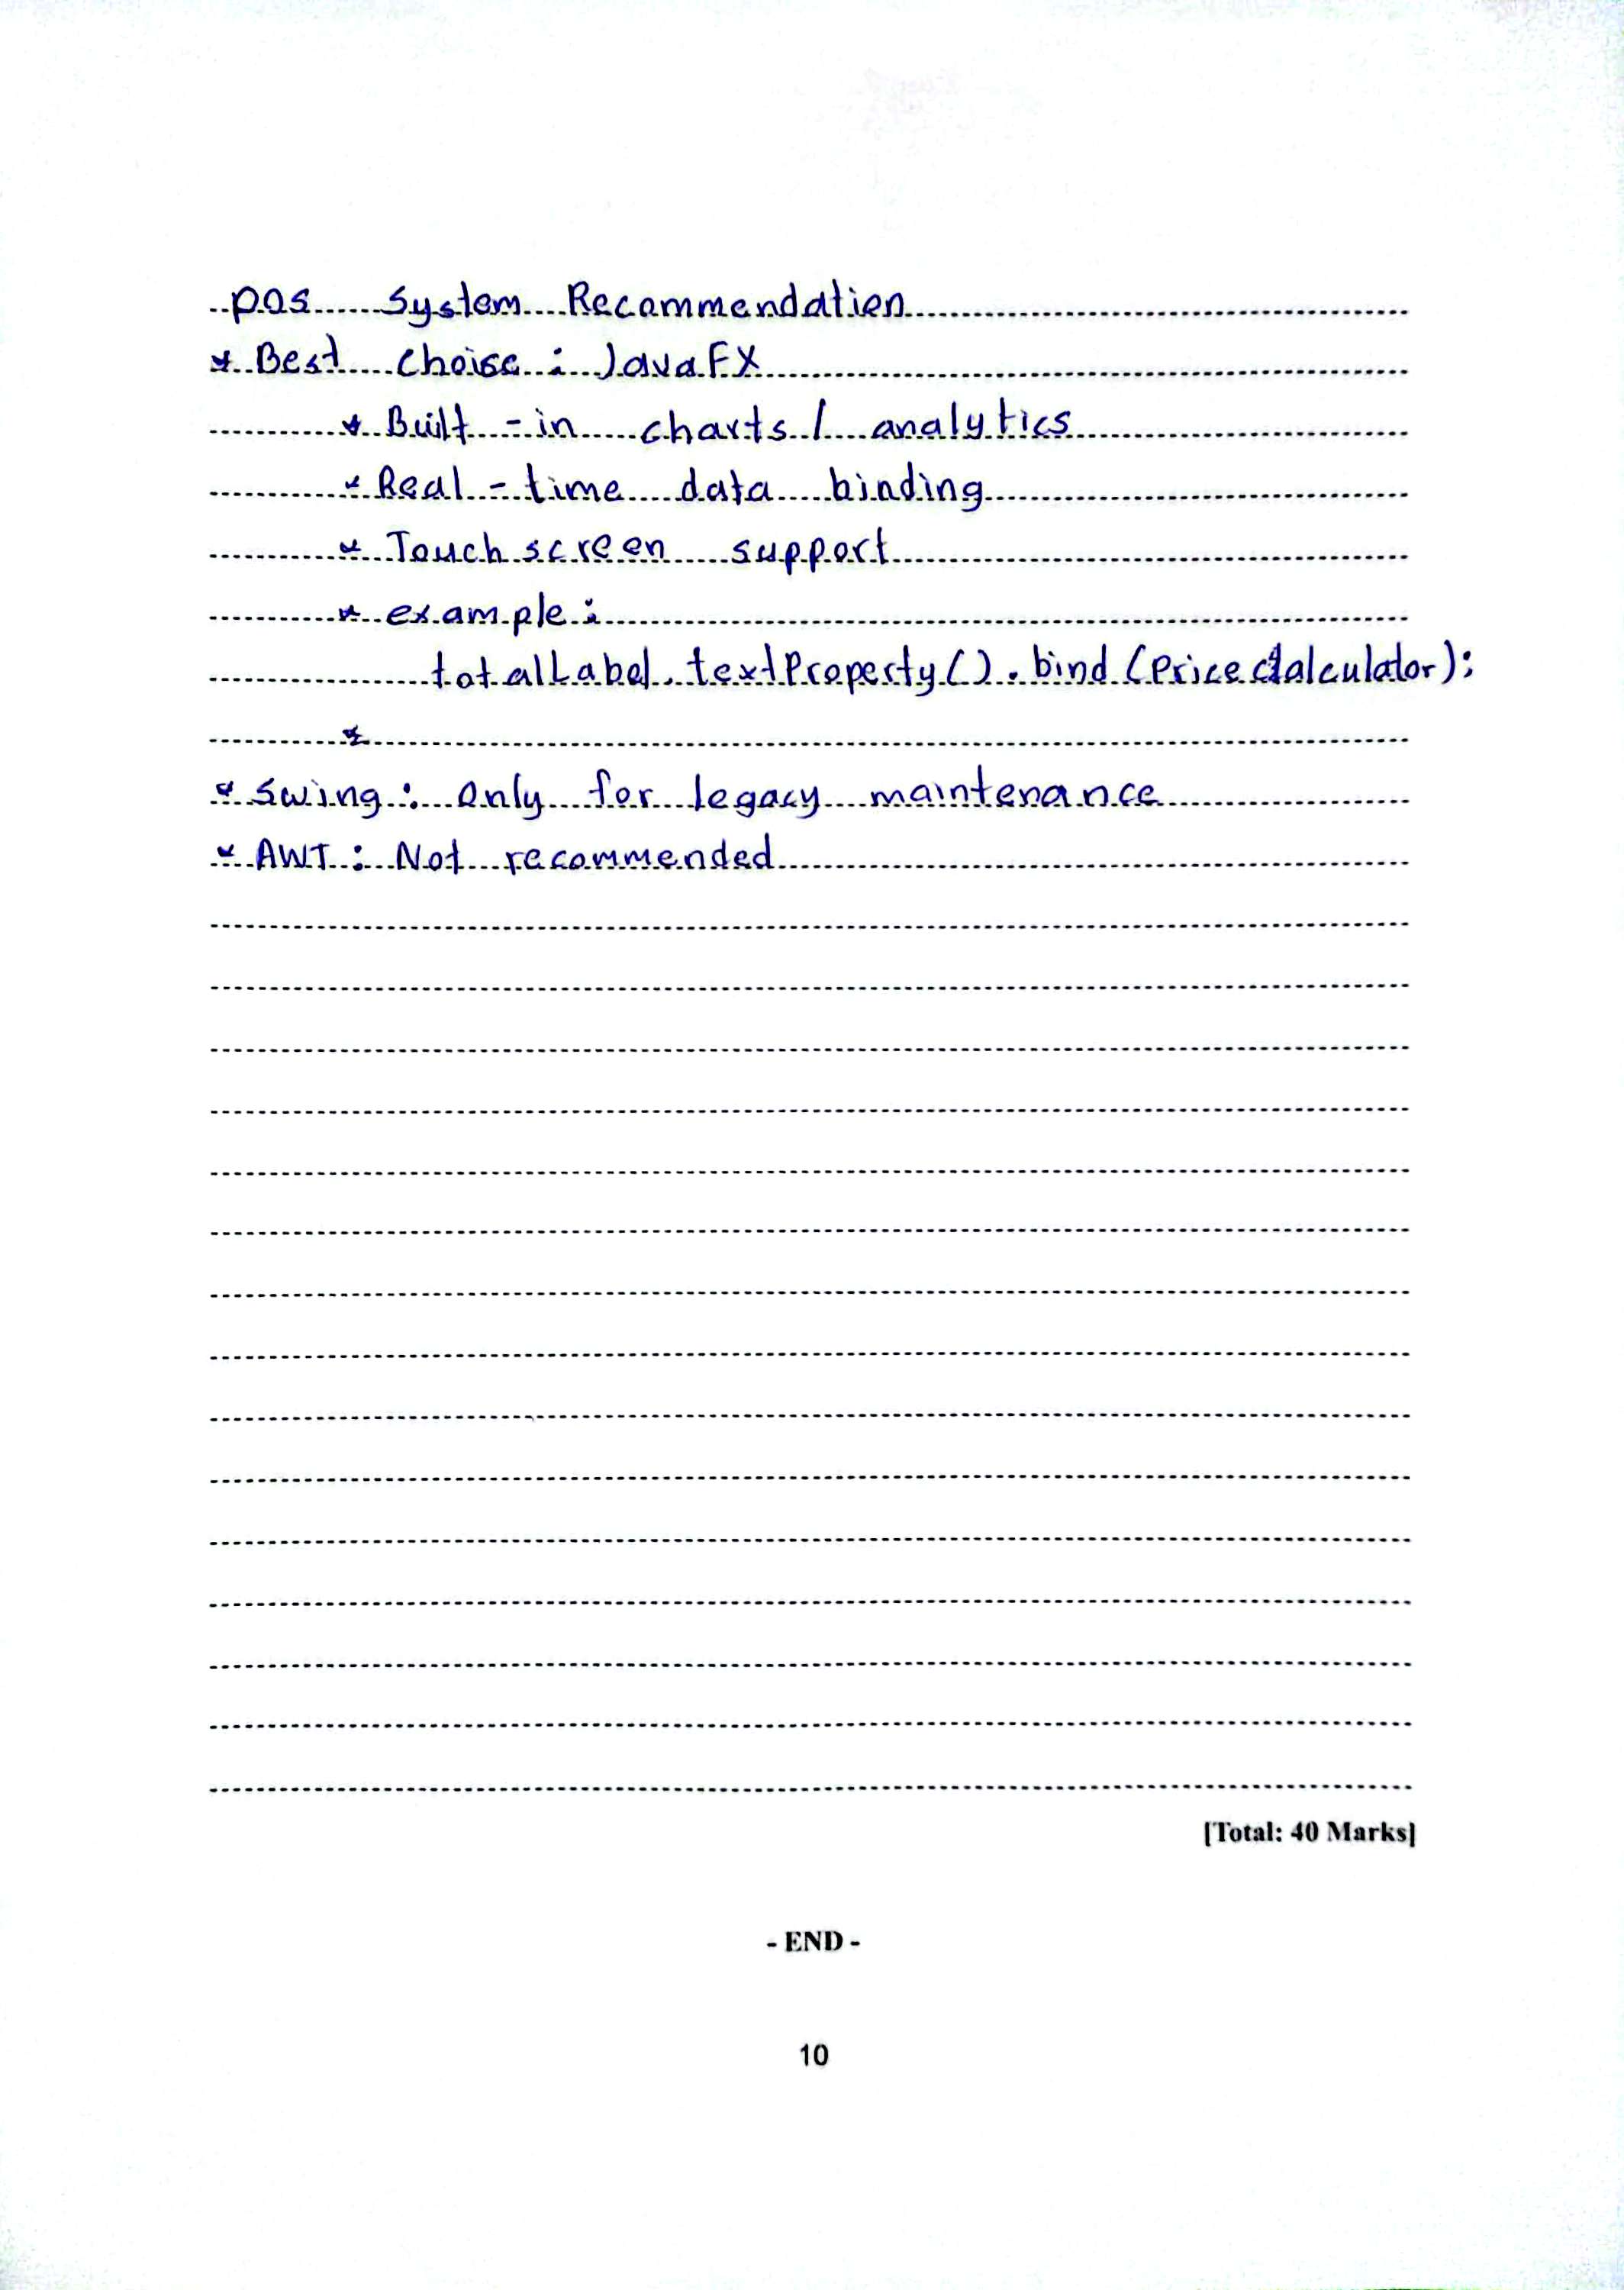 POS System Recommendation
* Best Choise : JavaFX
* Built - in charts / analytics
* Real - time data binding
* Touch screen support
* example :
totalLabel.textProperty().bind(Price Calculator);
*
* Swing : Only for legacy maintenance
* AWT : Not recommended
[Total: 40 Marks]
- END -
10